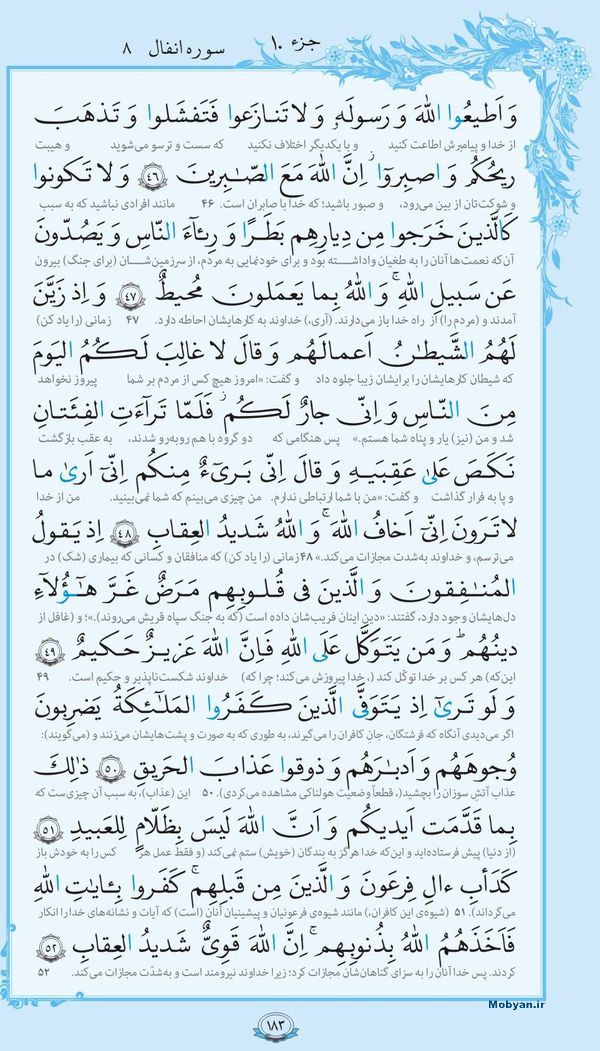 جزء ۱۰ سوره انفال ۸
وَ اَطیعُوا اللهَ وَ رَسولَهٗ وَ لا تَنازَعوا فَتَفشَلوا وَ تَذهَبَ
از خدا و پیامبرش اطاعت کنید و با یکدیگر اختلاف نکنید که سست و ترسو می‌شوید و هیبت
ریحُکُم وَ اصبِروٓا ۚ اِنَّ اللهَ مَعَ الصّٰبِرینَ ﴿۴۶﴾ وَ لا تَکونوا
و شوکت‌تان از بین می‌رود، و صبور باشید؛ که خدا با صابران است. ۴۶ مانند افرادی نباشید که به سبب
کَالَّذینَ خَرَجوا مِن دِیارِهِم بَطَرًا وَ رِئآءَ النّاسِ وَ یَصُدّونَ
آن‌که نعمت‌ها آنان را به طغیان واداشـته بود و برای خودنمایی به مردم، از سرزمین‌شـان (برای جنگ) بیرون
عَن سَبیلِ اللهِ ۚ وَ اللهُ بِما یَعمَلونَ مُحیطٌ ﴿۴۷﴾ وَ اِذ زَیَّنَ
آمدند و (مردم را) از راه خدا باز می‌دارند. (آری،) خداوند به کارهایشان احاطه دارد. ۴۷ زمانی (را یاد کن)
لَهُمُ الشَّیطٰنُ اَعمالَهُم وَ قالَ لا غالِبَ لَکُمُ الیَومَ
که شیطان کارهایشان را برایشان زیبا جلوه داد و گفت: «امروز هیچ کس از مردم بر شما پیروز نخواهد
مِنَ النّاسِ وَ اِنّی جارٌ لَکُم ۖ فَلَمّا تَرآءَتِ الفِئَتانِ
شد و من (نیز) یار و پناه شما هستم.» پس هنگامی که دو گروه با هم روبه‌رو شدند، به عقب بازگشت
نَکَصَ عَلیٰ عَقِبَیهِ وَ قالَ اِنّی بَریٓءٌ مِنکُم اِنّیٓ اَریٰ ما
و پا به فرار گذاشت و گفت: «من با شما ارتباطی ندارم. من چیزی می‌بینم که شما نمی‌بینید. من از خدا
لا تَرَونَ اِنّیٓ اَخافُ اللهَ ۚ وَ اللهُ شَدیدُ العِقابِ ﴿۴۸﴾ اِذ یَقولُ
می‌ترسم، و خداوند به‌شدت مجازات می‌کند.» ۴۸ زمانی (را یاد کن) که منافقان و کسانی که بیماری (شک) در
المُنٰفِقونَ وَ الَّذینَ فی قُلوبِهِم مَرَضٌ غَرَّ هٰٓؤُلآءِ
دل‌هایشان وجود دارد، گفتند: «دین اینان فریب‌شان داده است (که به جنگ سپاه قریش می‌روند).»؛ و (غافل از
دینُهُم ۗ وَ مَن یَتَوَکَّل عَلَی اللهِ فَاِنَّ اللهَ عَزیزٌ حَکیمٌ ﴿۴۹﴾
این‌که) هر کس بر خدا توکّل کند (، خدا پیروزش می‌کند؛ چرا که) خداوند شکست‌ناپذیر و حکیم است. ۴۹
وَ لَو تَریٰٓ اِذ یَتَوَفَّی الَّذینَ کَفَرُوا المَلٰٓئِکَةُ یَضرِبونَ
اگر می‌دیدی آنگاه که فرشتگان، جان کافران را می‌گیرند، به طوری که به صورت و پشت‌هایشان می‌زنند و (می‌گویند):
وُجوهَهُم وَ اَدبٰرَهُم وَ ذوقوا عَذابَ الحَریقِ ﴿۵۰﴾ ذٰلِکَ
عذاب آتش سوزان را بچشید(، قطعاً وضعیت هولناکی مشاهده می‌کردی). ۵۰ این (عذاب)، به سبب آن چیزی‌ست که
بِما قَدَّمَت اَیدیکُم وَ اَنَّ اللهَ لَیسَ بِظَلّامٍ لِلعَبیدِ ﴿۵۱﴾
(از دنیا) پیش فرستاده‌اید و این‌که خدا هرگز به بندگان (خویش) ستم نمی‌کند (و فقط عمل هر کس را به خودش باز
کَدَأبِ ءالِ فِرعَونَ وَ الَّذینَ مِن قَبلِهِم ۚ کَفَروا بِـٔایٰتِ اللهِ
می‌گرداند). ۵۱ (شیوه‌ی این کافران،) مانند شیوه‌ی فرعونیان و پیشینیان آنان (است) که آیات و نشانه‌های خدا را انکار
فَاَخَذَهُمُ اللهُ بِذُنوبِهِم ۚ اِنَّ اللهَ قَویٌّ شَدیدُ العِقابِ ﴿۵۲﴾
کردند. پس خدا آنان را به سزای گناهان‌شان مجازات کرد؛ زیرا خداوند نیرومند است و به‌شدّت مجازات می‌کند. ۵۲
Mobyan.ir
۱۸۳